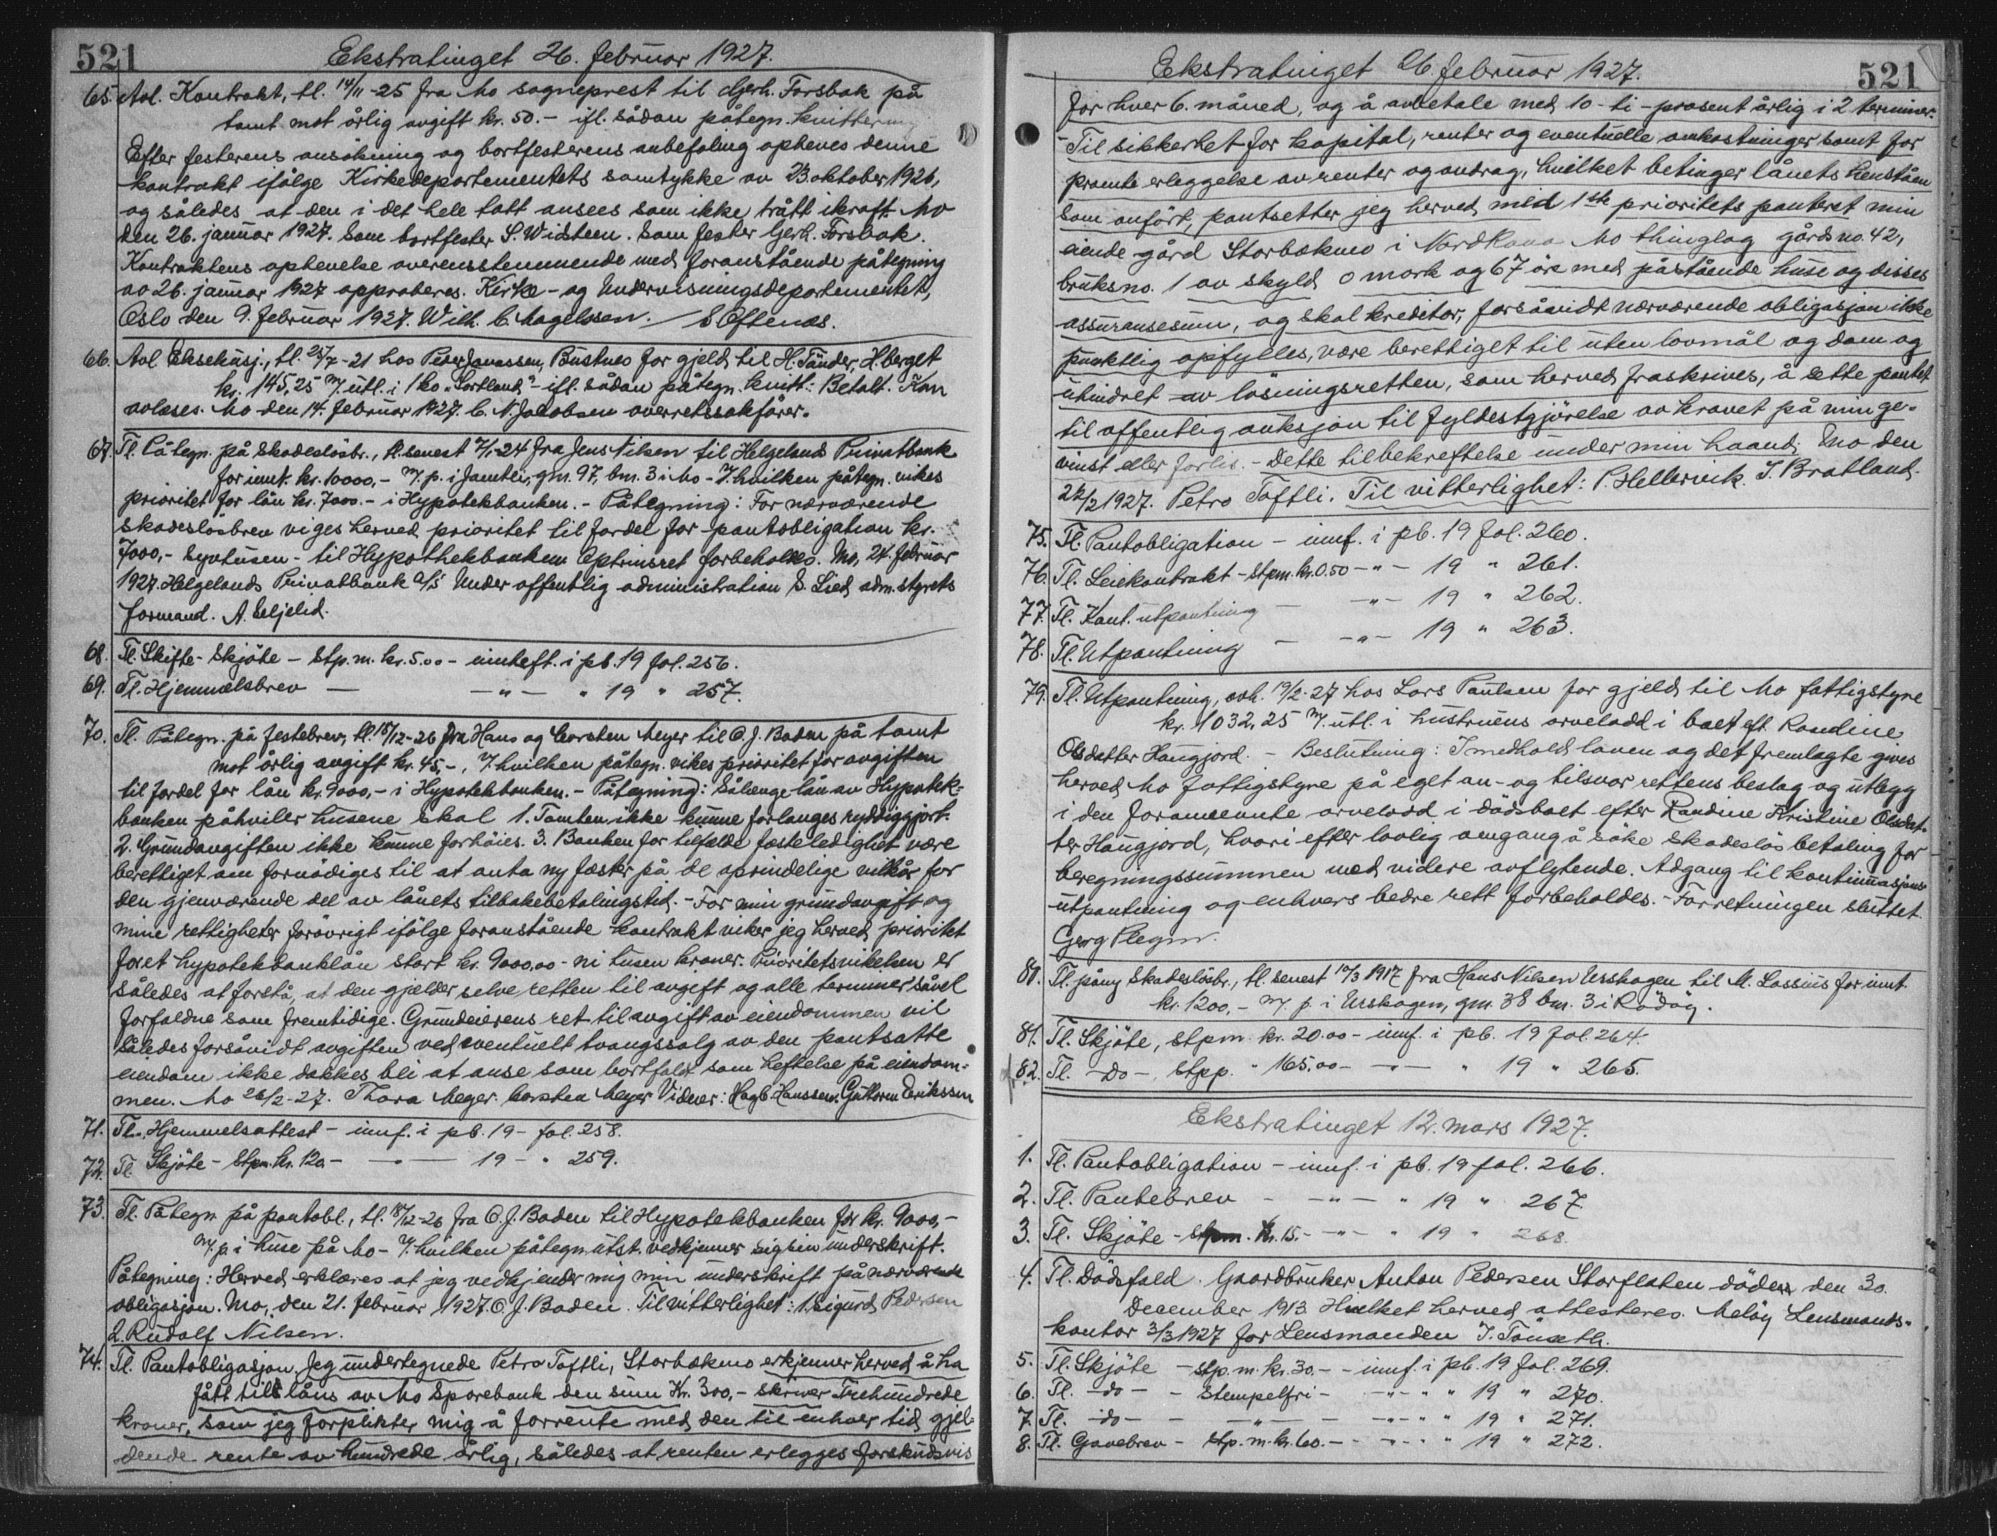 521
Ekstratinget 26. februar 1927.
65. Avl. Kontrakt, tl. 14/11-25 fra Mo sogneprest til Gerh. Forsbak på
tomt mot årlig avgift kr. 50.- ifl. sådan påtegn. kvittering
Efter festerens ansökning og bortfesterens anbefaling opheves denne
kontrakt ifölge Kirkedepartementets samtykke av 23 oktober 1926,
og således at den i det hele tatt ansees som ikke trått ikraft. Mo
den 26. januar 1927. Som bortfester S. Widsteen. Som fester Gerh. Forsbak.
Kontraktens ophevelse overensstemmende med foranstående påtegning
av 26. januar 1927 approberes. Kirke- og Undervisningsdepartementet,
Oslo den 9. februar 1927. Wilh. C. Magelssen. / S Oftenæs.
66. Avl Eksekusj., tl. 25/7-21 hos Peder Jonassen, Bustnes for gjeld til H. Tänder, H.berget
kr. 145,25 m/ utl. i 1 ko "Sortland" - ifl. sådan påtegn. kvitt: Betalt. Kan
avlæses. Mo den 14. februar 1927. C. N. Jacobsen overretssakförer.
67. Tl. Påtegn. på Skadeslösbr., tl. senest 7/1-24 fra Jens Nilsen til Helgelands Privatbank
for innt. kr. 10000,- m/ p. i Jamtli, gnr. 97, bnr. 3 i Mo - I hvilken påtegn. vikes
prioritet for lån kr. 7000.- i Hypotekbanken. - Påtegning: For nærværende
skadeslösbrev viges herved prioritet til fordel for pantobligation kr.
7000,- syvtusen - til Hypothekbanken Optrinsret forbeholdes. Mo, 24 februar
1927. Helgelands Privatbank A/S Under offentlig administration S. Lied adm. styrets
formand. A. Seljelid.
68. Tl. Skifte-Skjöte - Stp. m. kr. 5.00 - innheft. i pb. 19 fol. 256.
69. Tl. Hjemmelsbrev — -"- " 19 " 257.
70. Tl. Påtegn. på festebrev, tl. 18/12-26 fra Hans og Carsten Meyer til O. J. Baden på tomt
mot årlig avgift kr. 45,-, I hvilken påtegn. vikes prioritet for avgiften
til fordel for lån kr. 9000,- i Hypotekbanken. - Påtegning: Sålænge lån av Hypotek-
banken påhviler husene skal 1. Tomten ikke kunne forlanges ryddiggjort.
2. Grundavgiften ikke kunne forhöies. 3. Banken for tilfælde festeledighet være
berettiget om fornödiges til at anta ny fæster på de oprindelige vilkår for
den gjenværende del av lånets tilbakebetalingstid. - For min grundavgift og
mine rettigheter forövrigt ifölge foranstående kontrakt viker jeg herved prioritet
foret hypotekbanklån stort kr. 9000,00 - ni tusen kroner. Prioritetsvikelsen er
således at forstå, at den gjælder selve retten til avgift og alle terminer såvel
forfaldne som fremtidige. Grundeierens ret til avgift av eiendommen vil
således forsåvidt avgiften ved eventuelt tvangssalg av den pantsatte
eiendom ikke dækkes bli at anse som bortfaldt som heftelse på eiendom-
men. Mo 26/2-27. Thora Meyer. Carsten Meyer Vidner: Hagb. Hanssen. Guttorm Erikssen
71. Tl. Hjemmelsattest - innf. i pb. 19 - fol. 258.
72. Tl Skjöte - Stpm. kr. 120.- — " — 19 - " 259.
73. Tl. Påtegn på pantobl., tl. 18/12-26 fra O. J. Baden til Hypotekbanken for kr. 9000,-
m/ p i huse på Mo - I hvilken påtegn. utst. vedkjenner sig sin underskrift.
Påtegning: Herved erklæres at jeg vedkjender mig min underskrift på nærværende
obligasjon. Mo, den 21. februar 1927. O. J. Baden. Til vitterlighet: 1. Sigurd Pedersen
2. Rudolf Nilsen.
74. Tl. Pantobligasjon. Jeg undertegnede Petro Toftli, Storbækmo erkjenner herved å ha
fått tillåns av Mo Sparebank den sum Kr. 300,- skriver Trehundrede
kroner, som jeg forplikter mig å forrente med den til enhver tid gjel-
dende rente av hundrede årlig, således at renten erlegges forskudsvis
Ekstratinget 26. februar 1927.
521
for hver 6. måned, og å avbetale med 10-ti-prosent årlig i 2 terminer.
- Til sikkerhet for kapital, renter og eventuelle omkostninger samt for
promte erleggelse av renter og avdrag, hvilket betinger lånets henståen
som anfört, pantsetter jeg herved med 1ste prioritets panteret min
eiende gård Storbækmo i Nordrana Mo thinglag gårdsno. 42,
bruksno. 1 av skyld 0 mark og 67 öre med påstående huse og disses
assuransesum, og skal kreditor, forsåvidt nærværende obligasjon ikke
punktlig opfylles, være berettiget til uten lovmål og dom og
uhindret av lösningsretten, som herved fraskrives, å sette pantet
til offentlig auksjon til fyldestgjörelse av kravet på min ge-
vinst eller forlis. - Dette til bekreftelse under min haand. Mo den
22/2 1927. Petro Toftli. Til vitterlighet: P. Hellervik. J. Bratland.
75. Tl. Pantobligation - innf. i pb. 19 fol. 260.
76. Tl. Leiekontrakt - Stpm. kr. 0.50 - " - 19 " 261.
77. Tl. Kont. utpantning — -"- 19 " 262.
78. Tl. Utpantning — -"- 19 " 263.
79. Tl. Utpantning, avh. 19/2-27 hos Lars Paulsen for gjeld til Mo fattigstyre
kr. 1032,25 m/ utl. i hustruens arvelodd i boet eft. Randine
Olsdatter Haugjord. - Beslutning: I medhold loven og det fremlagte gives
herved Mo fattigstyre på eget an- og tilsvar rettens beslag og utlegg
i den forannevnte arvelodd i dödsboet efter Randine Kristine Olsdat-
ter Haugjord, hvori efter lovlig omgang å söke skadeslös betaling for
beregningssummen med videre avflytende. Adgang til kontinuasjons-
utpantning og enhvers bedre rett forbeholdes. - Forretningen sluttet.
Georg Plegm.
80. Tl. påny Skadeslösbr., tl. senest 17/3 1917 fra Hans Nilsen Urshagen til M. Lassius for innt
kr. 1200,- m/ p i Urshagen, gnr. 38 bnr. 3 i Rödöy.
81. Tl. Skjöte, stpm. kr. 20.00 - innf. i pb. 19 fol 264.
82. Tl. -Do-, Stpp. " 165,00 - -"- " 19 " 265.
Ekstratinget 12. mars 1927.
1. Tl. Pantobligation - innf. i pb. 19 fol. 266.
2. Tl. Pantebrev - -"- " 19 " 267.
3. Tl. Skjöte - Stpm. kr. 15.- -"- " 19 " 268.
4. Tl. Dödsfald. Gaardbruker Anton Pedersen Storflaten döde den 30.
December 1913 Hvilket herved attesteres. Melöy Lensmands-
kontor 3/3 1927 for Lensmanden J. Tönseth.
5. Tl. Skjöte - Stp. m. kr. 30.- - innf. i pb. 19 fol. 269.
6. Tl. -do- - Stempelfri - -"- " 19 " 270.
7. Tl. -do- - " - -"- " 19 " 271.
8. Tl. Gavebrev - Stp. m. kr. 60.- -"- " 19 " 272.